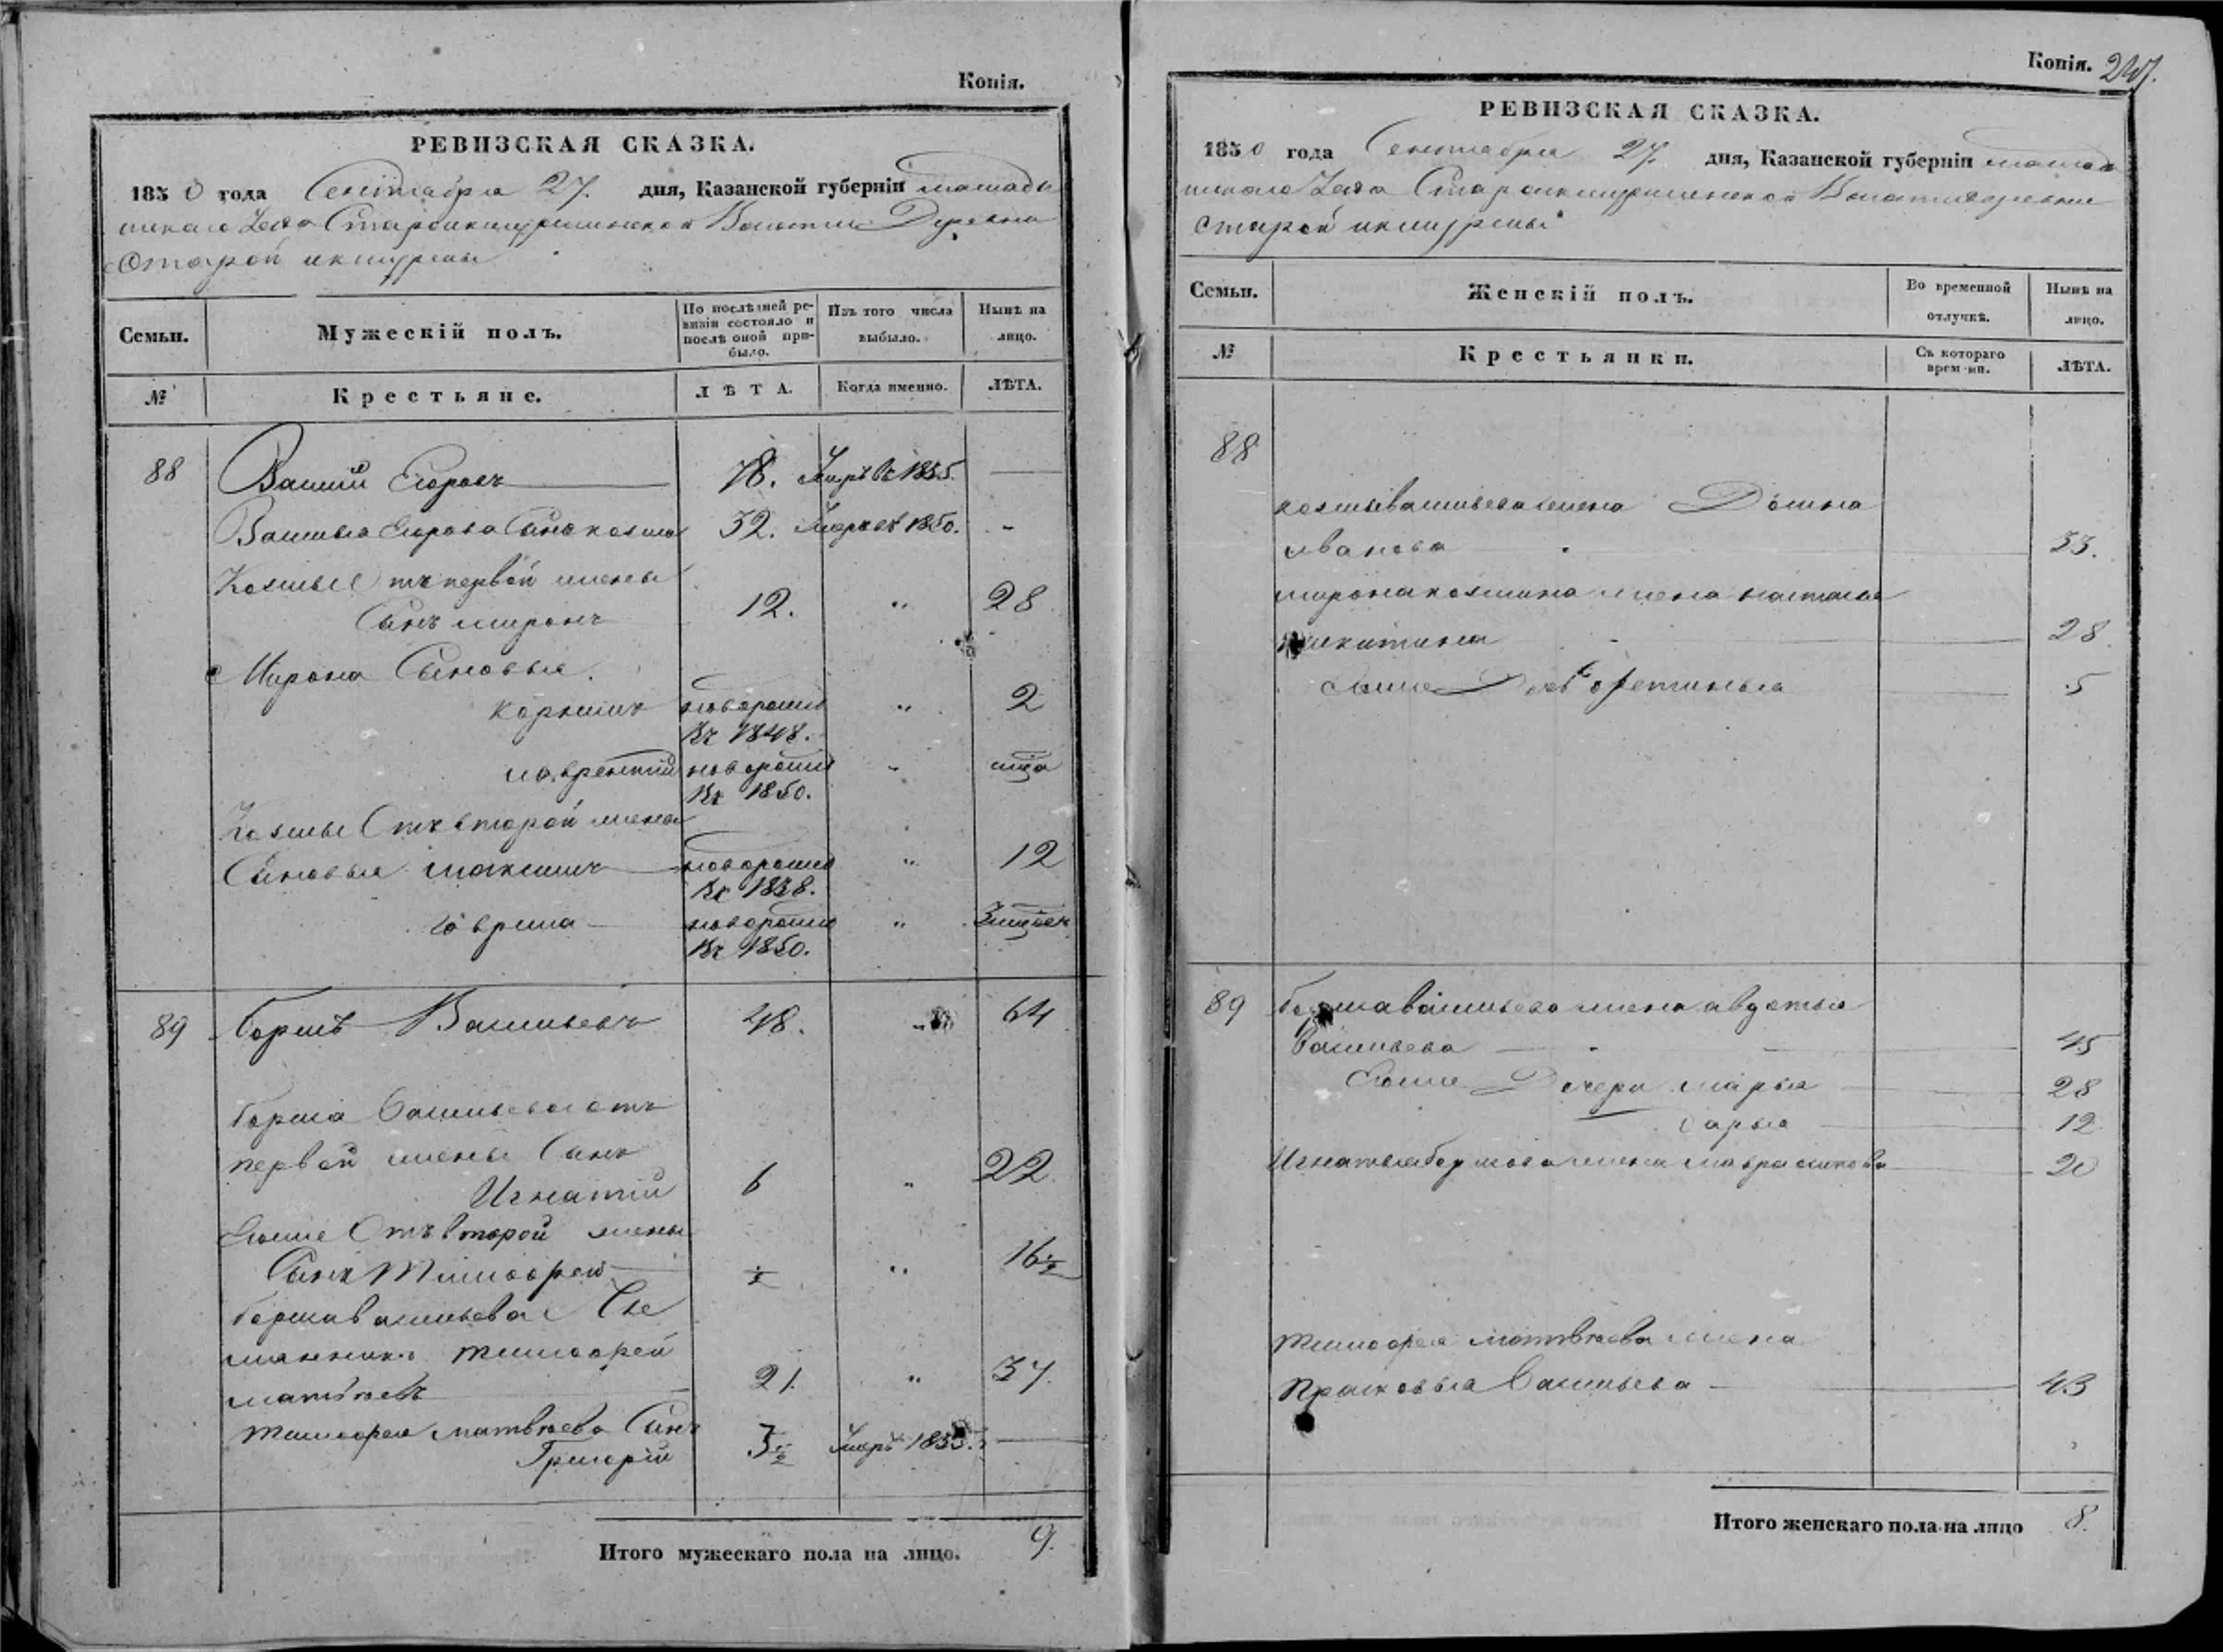 Копія.
РЕВИЗСКАЯ СКАЗКА.
1850 года Сентября 27. дня, Казанской губерніи
Волости Деревни
Старой икшурмы
Семьи.
Мужескій полъ.
По послѣдней ревизіи состояло и послѣ оной прибыло.
Изъ того числа выбыло.
Нынѣ на лицо.
№
Крестьяне.
ЛѢТА.
Когда именно.
ЛѢТА.
88
Василий Егоровъ 78. 1835. —
Василья Егорова Сынъ козма 32. 1850. -
Козмы Отъ первой жены
Сынъ миронъ 12. " 28
Мирона Сыновья
новорож " 2
Въ 1848.
лаврентий новорож "
Въ 1850.
Козмы Отъ второй жены
Сыновья максимъ новорож " 12
Въ 1838.
гаврила новорож "
Въ 1850.
89 Васильевъ 48. 64
Васильева отъ
первой жены Сынъ
Игнатий 6 " 22.
Отъ второй жены
Сынъ Тимофей ½ " 16½
Васильева Пле
мянникъ тимофей
матвѣевъ 21. " 37.
тимофея матвѣева Сынъ
Григорій 3½ —
Итого мужескаго пола на лицо. 9.
Копія.
РЕВИЗСКАЯ СКАЗКА.
1850 года Сентября 27. дня, Казанской губерніи
старой икшурмы
Семьи.
Женскій полъ.
Во временной отлучкѣ.
Нынѣ на лицо.
№
Крестьянки.
Съ котораго времени.
ЛѢТА.
88
козмы васильева жена Домна
иванова 33.
мирона козмина жена настасья
никитина 28.
5
89 васильева жена авдотья
Васильева 45
Дочери марья 28
дарья 12
Игнатья жена мавра 20
тимофея матвѣева жена
Прасковья Васильева 43
Итого женскаго пола на лицо 8.